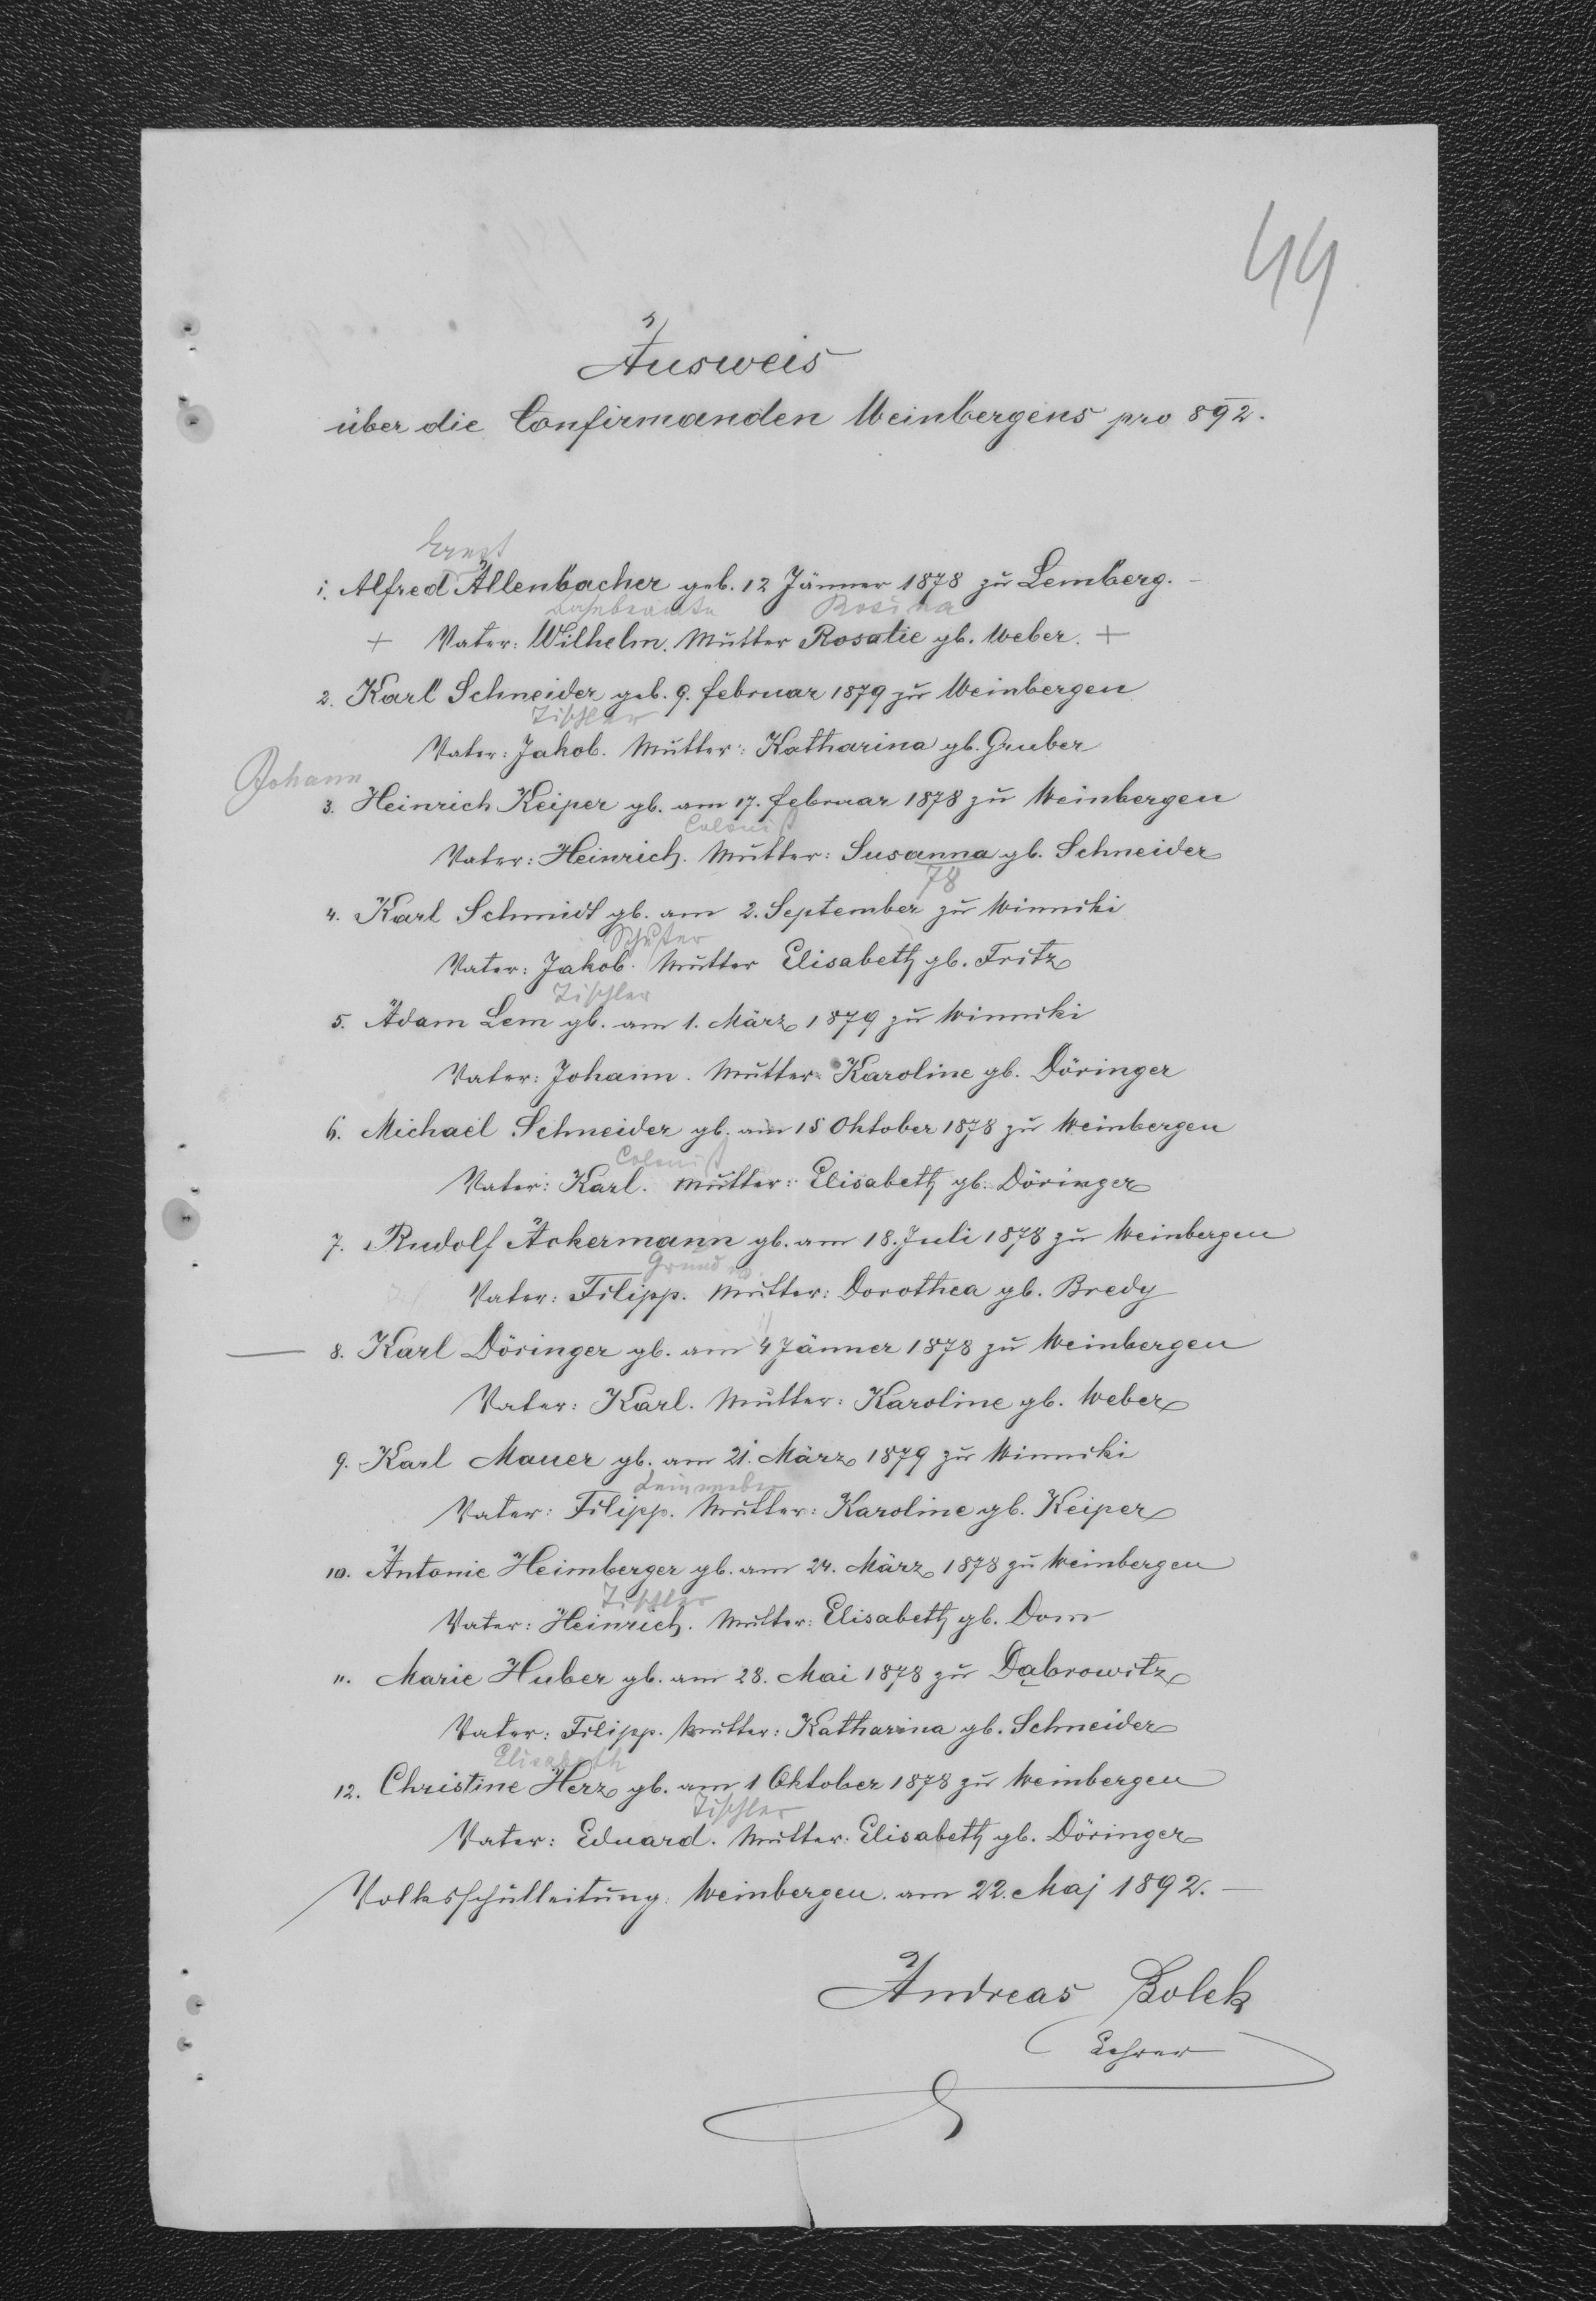 44
Ausweis
über die Confirmanden Weinbergens pro 892.
Ernst
1. Alfred Allenbacher geb. 12 Jänner 1878 zu Lemberg. -
Rosina
+ Vater: Wilhelm. Mutter Rosalie gb. Weber. +
2. Karl Schneider geb. 9. Februar 1879 zu Weinbergen
Tischler
Vater: Jakob. Mutter: Katharina gb. Gruber
Johann
3. Heinrich Keiper gb. am 17. Februar 1878 zu Weinbergen
Colonist
Vater: Heinrich. Mutter: Susanna gb. Schneider
78
4. Karl Schmidt gb. am 2. September zu Winniki
Schuster
Vater: Jakob. Mutter Elisabeth gb. Fritz
Tischler
5. Adam Lem gb. am 1. März 1879 zu Winniki
Vater: Johann. Mutter: Karoline gb. Döringer
6. Michael Schneider gb. am 15 Oktober 1878 zu Weinbergen
Colonist
Vater: Karl. Mutter: Elisabeth gb. Döringer
7. Rudolf Ackermann gb. am 18. Juli 1878 zu Weinbergen
Vater: Filipp. Mutter: Dorothea gb. Bredy
8. Karl Döringer gb. am 4 Jänner 1878 zu Weinbergen
Vater: Karl. Mutter: Karoline gb. Weber
9. Karl Mauer gb. am 21. März 1879 zu Winniki
Leinweber
Vater: Filipp. Mutter: Karoline gb. Keiper
10. Antonie Heimberger gb. am 24. März 1878 zu Weinbergen
Tischler
Vater: Heinrich. Mutter: Elisabeth gb. Dom
11. Marie Huber gb. am 28. Mai 1878 zu Dąbrowitz
Vater: Filipp. Mutter: Katharina gb. Schneider
Elisabeth
12. Christine Herz gb. am 1 Oktober 1878 zu Weinbergen
Tischler
Vater: Eduard. Mutter: Elisabeth gb. Döringer
Volksschulleitung: Weinbergen. am 22. Maj 1892. -
Andreas Bolek
Lehrer